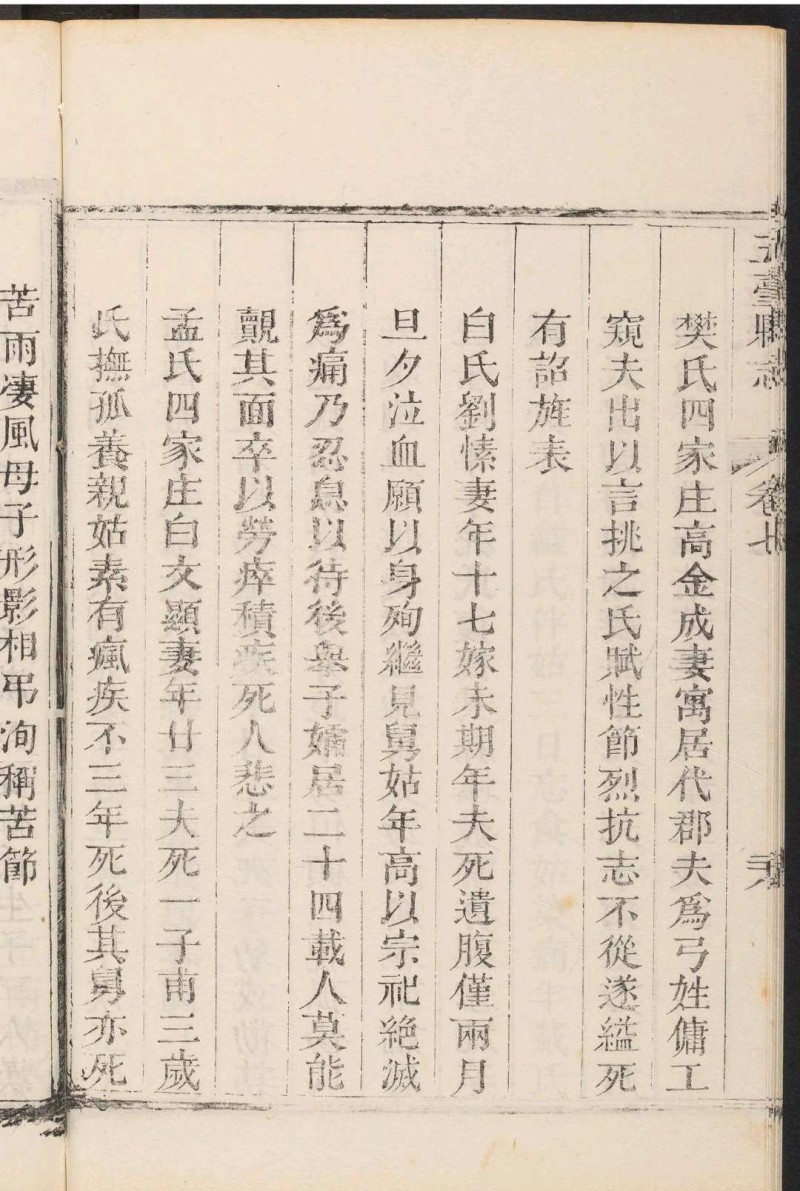 五臺縣志
卷七
樊氏四家庄高金成妻寓居代郡夫爲弓姓傭工
窺夫出以言挑之氏賦性節烈抗志不從遂縊死
有詔旌表
白氏劉愫妻年十七嫁未期年夫死遺腹僅兩月
旦夕泣血願以身殉繼見舅姑年高以宗祀絶滅
爲痛乃忍息以待後舉子孀居二十四載人莫能
覿其面卒以勞瘁積疾死人悲之
孟氏四家庄白文顯妻年廿三夫死一子甫三歲
氏撫孤養親姑素有瘋疾不三年死後其舅亦死
苦雨凄風母子形影相弔洵稱苦節